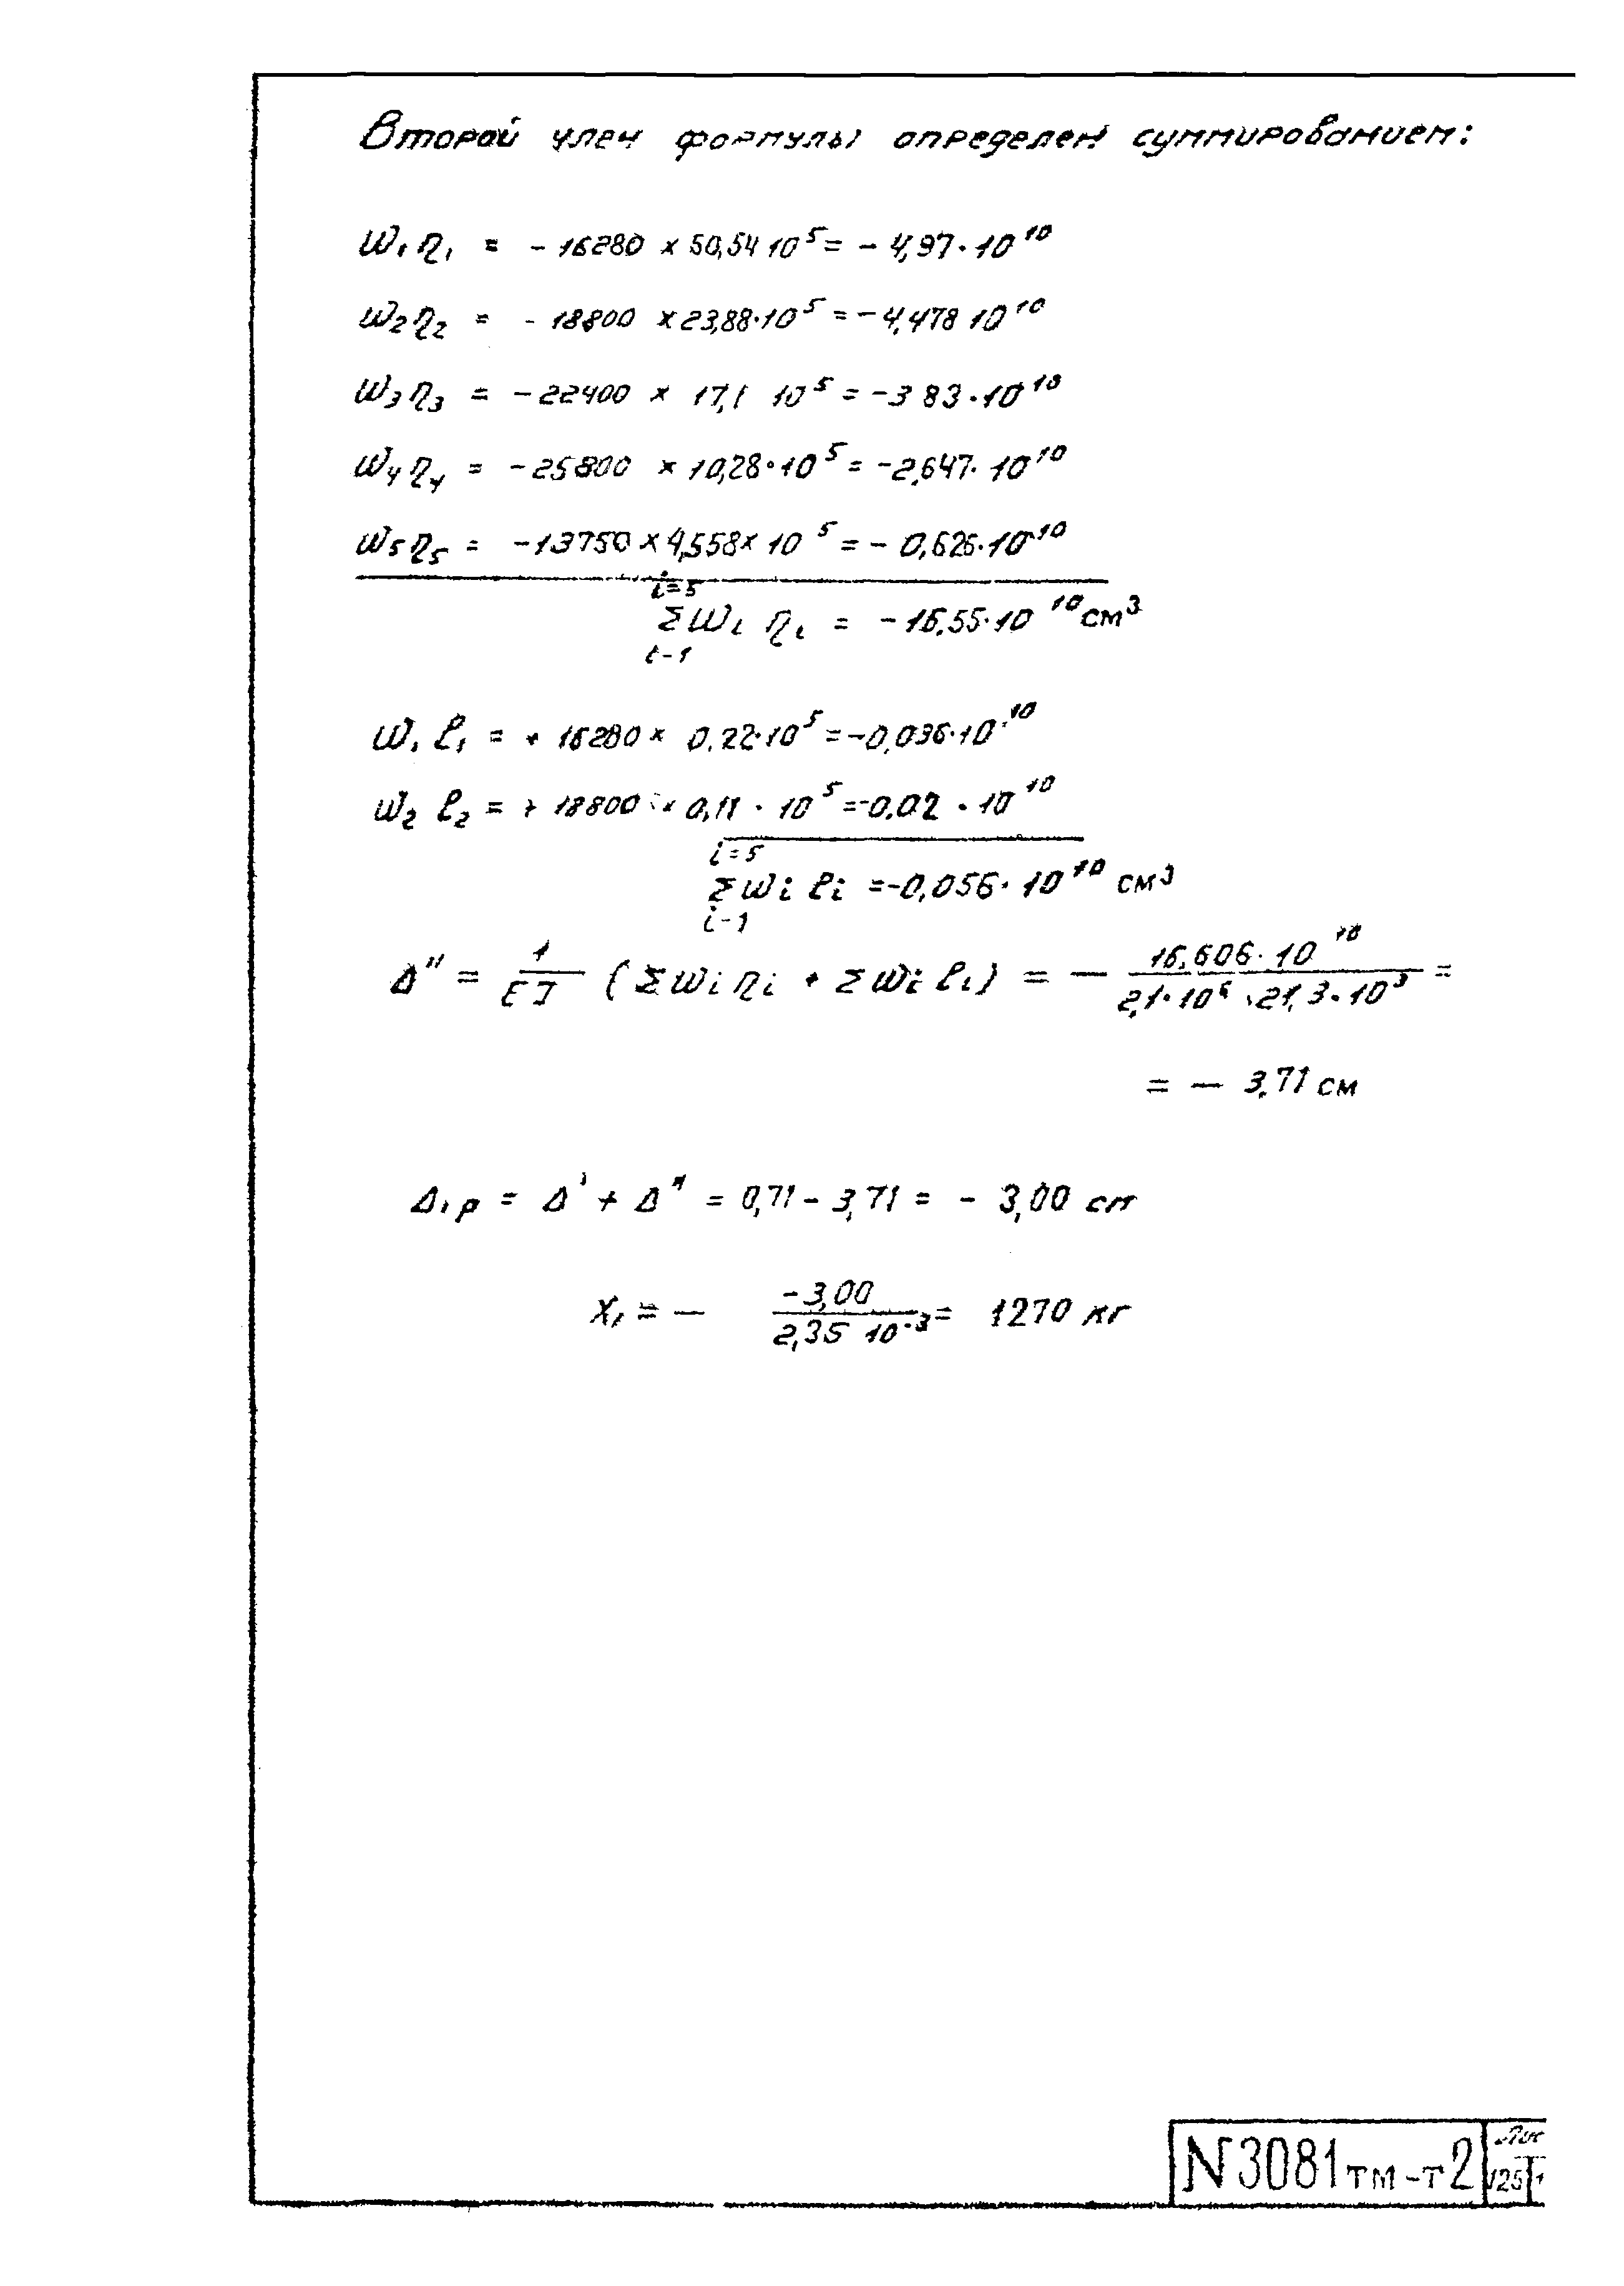 Второй член формулы определен суммированием:
ω₁η₁ = - 16280 × 50,54 10⁵ = - 4,97·10¹⁰
ω₂η₂ = - 18800 × 23,88·10⁵ = - 4,478 10¹⁰
ω₃η₃ = - 22400 × 17,1 10⁵ = - 3 83·10¹⁰
ω₄η₄ = - 25800 × 10,28·10⁵ = - 2,647·10¹⁰
ω₅η₅ = - 13750 × 4,558 × 10⁵ = - 0,626·10¹⁰
i=5
Σωᵢ ηᵢ = - 16,55·10¹⁰ см³
i-1
ω₁ ℓ₁ = + 16280 × 0,22·10⁵ = -0,036·10¹⁰
ω₂ ℓ₂ = + 18800 × 0,11 · 10⁵ = -0,02 · 10¹⁰
i=5
Σωᵢ ℓᵢ = -0,056·10¹⁰ см³
i-1
Δ" = 1/EJ (Σωᵢηᵢ + Σωᵢℓᵢ) = - 16,606·10¹⁰/2,1·10⁶·21,3·10³ =
= - 3,71 см
Δ₁ₚ = Δ' + Δ" = 0,71 - 3,71 = - 3,00 см
X₁ = - -3,00/2,35 10⁻³ = 1270 кг
N3081тм-т2
Лис
125 1